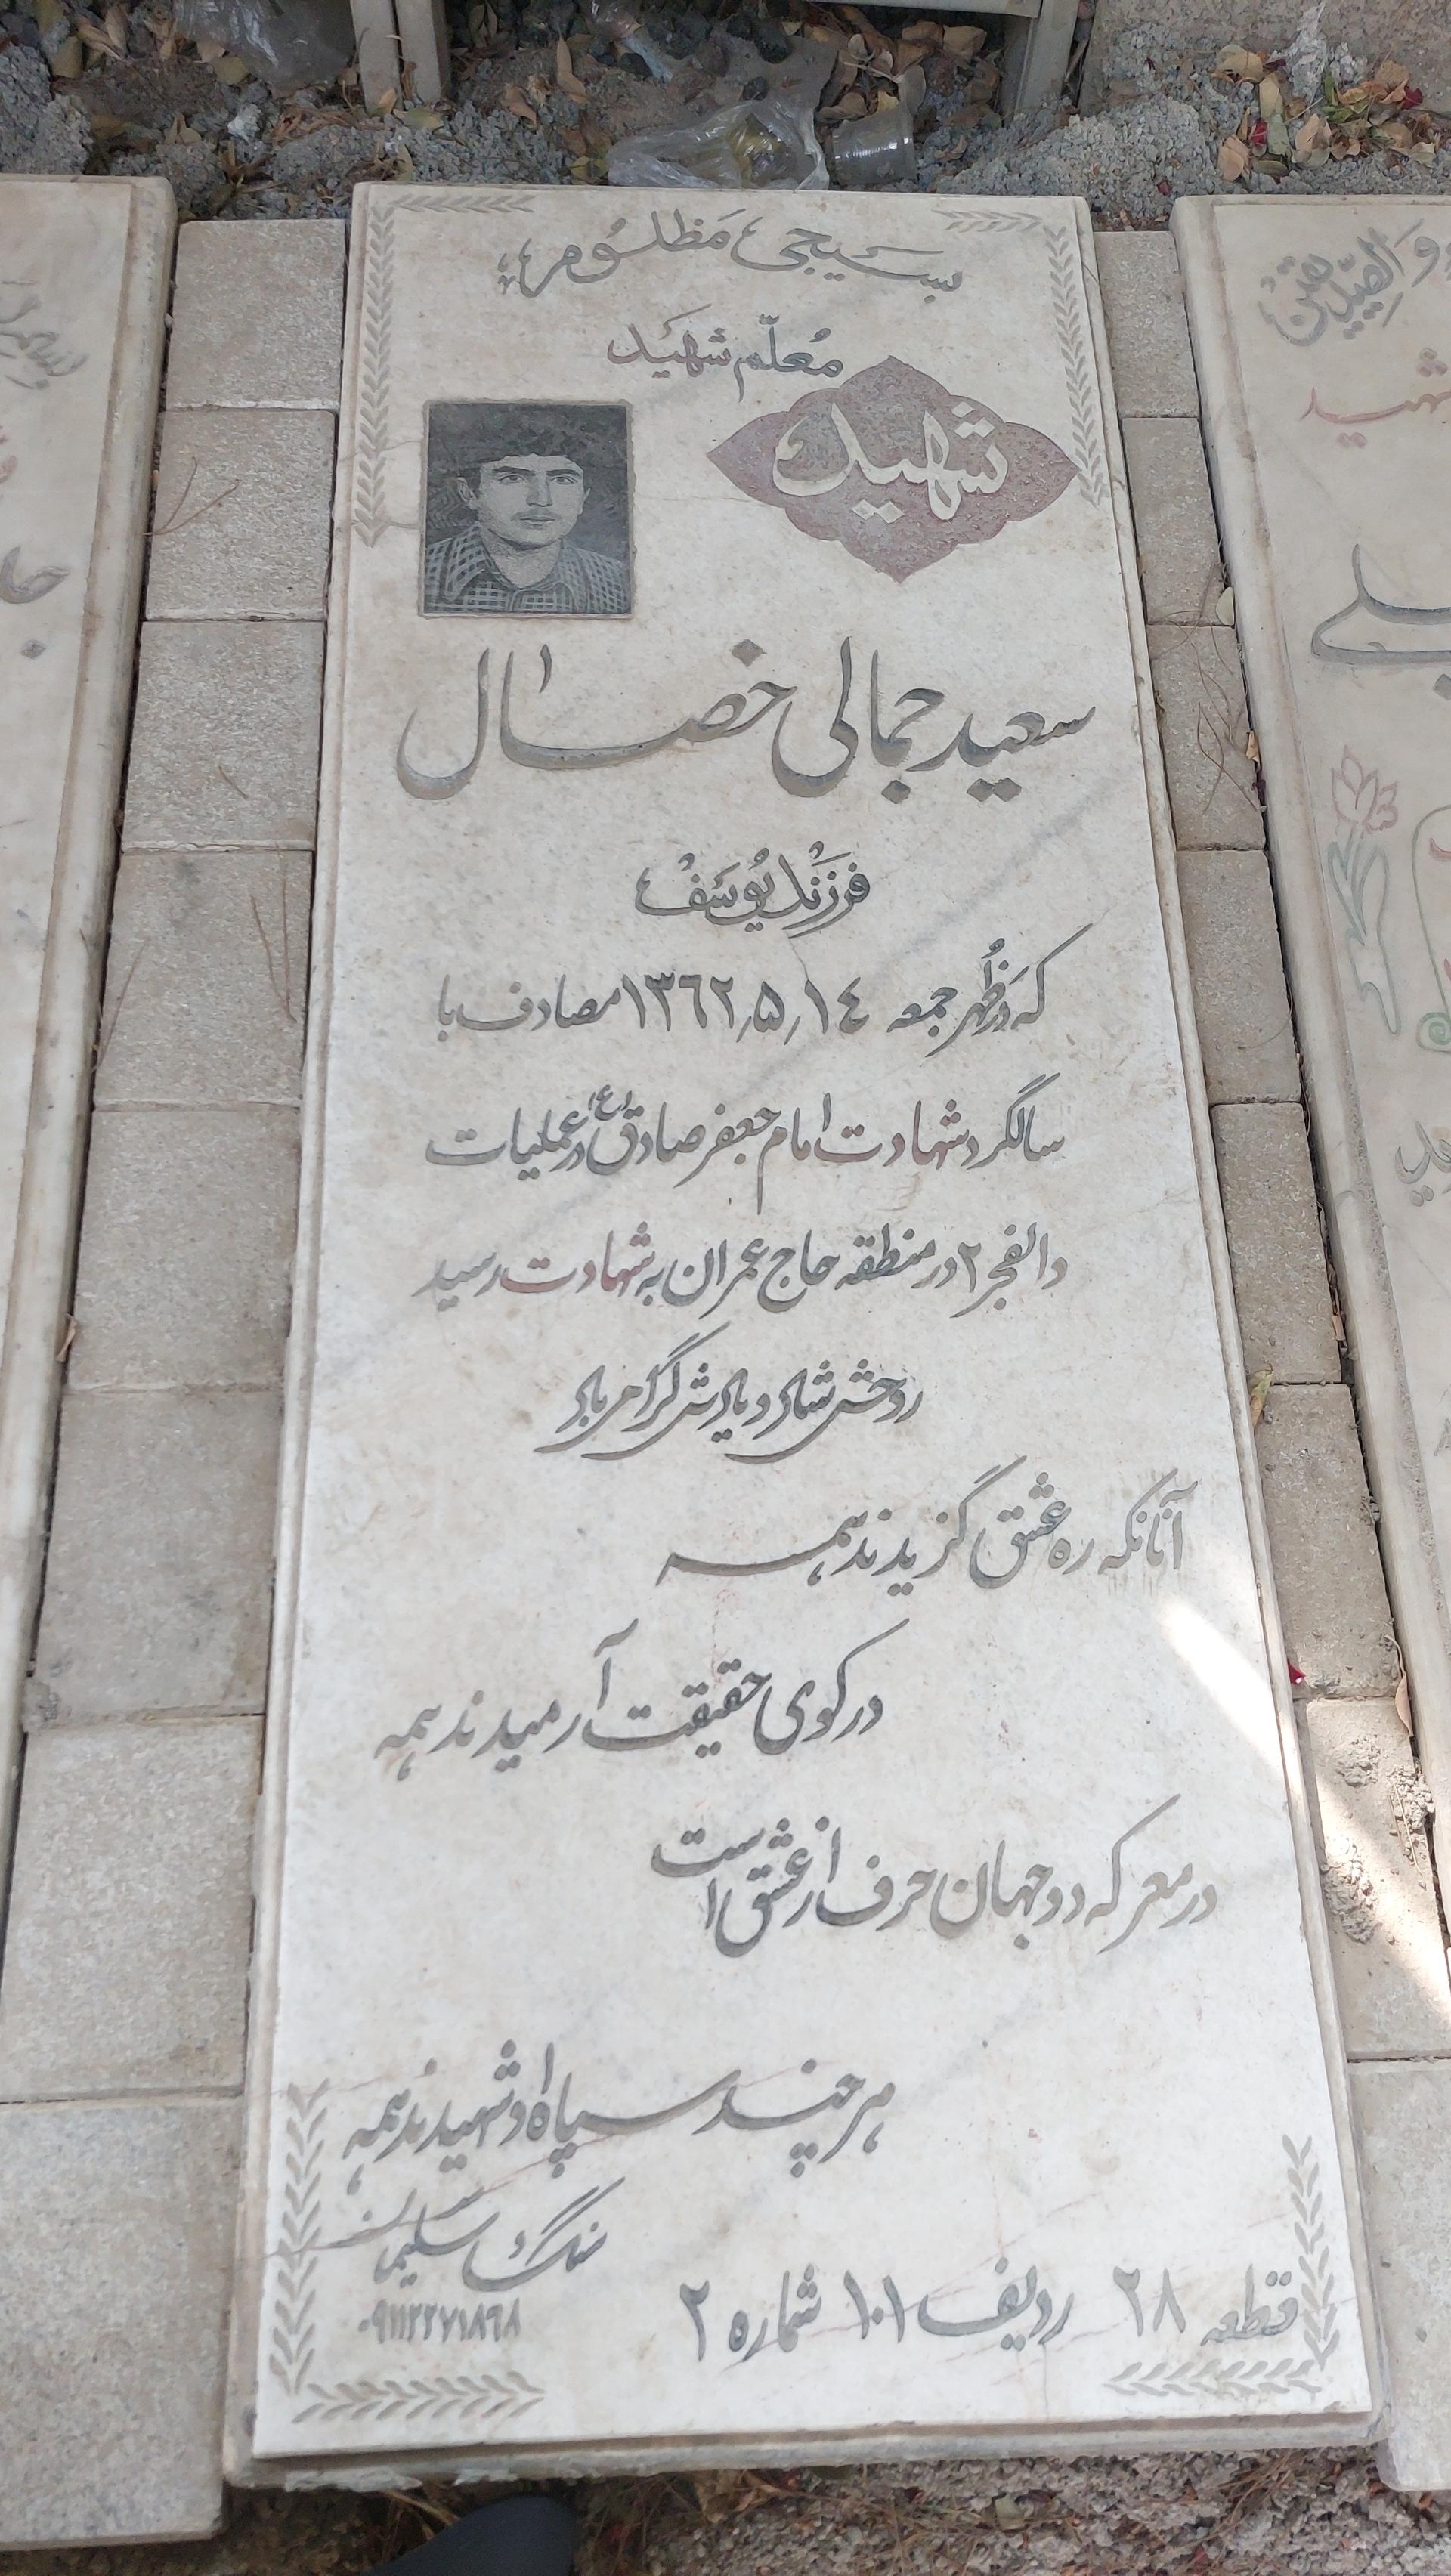 بسیجی مظلوم
معلّم شهید
شهید
سعید جمالی خصال
فرزند یوسف
که در ظهر جمعه ۱۴/۵/۱۳۶۲ مصادف با
سالگرد شهادت امام جعفر صادق (ع) در عملیات
والفجر ۲ در منطقه حاج عمران به شهادت رسید
روحش شاد و یادش گرامی باد
آنانکه ره عشق گزیدند همه
در کوی حقیقت آرمیدند همه
در معرکه دو جهان حرف از عشق است
هر چند سپاه او شهیدند همه
سنگ سلیمان
۰۹۱۱۲۲۷۱۸۶۸
قطعه ۲۸ ردیف ۱۰۱ شماره ۲
والصدیقین
شهید